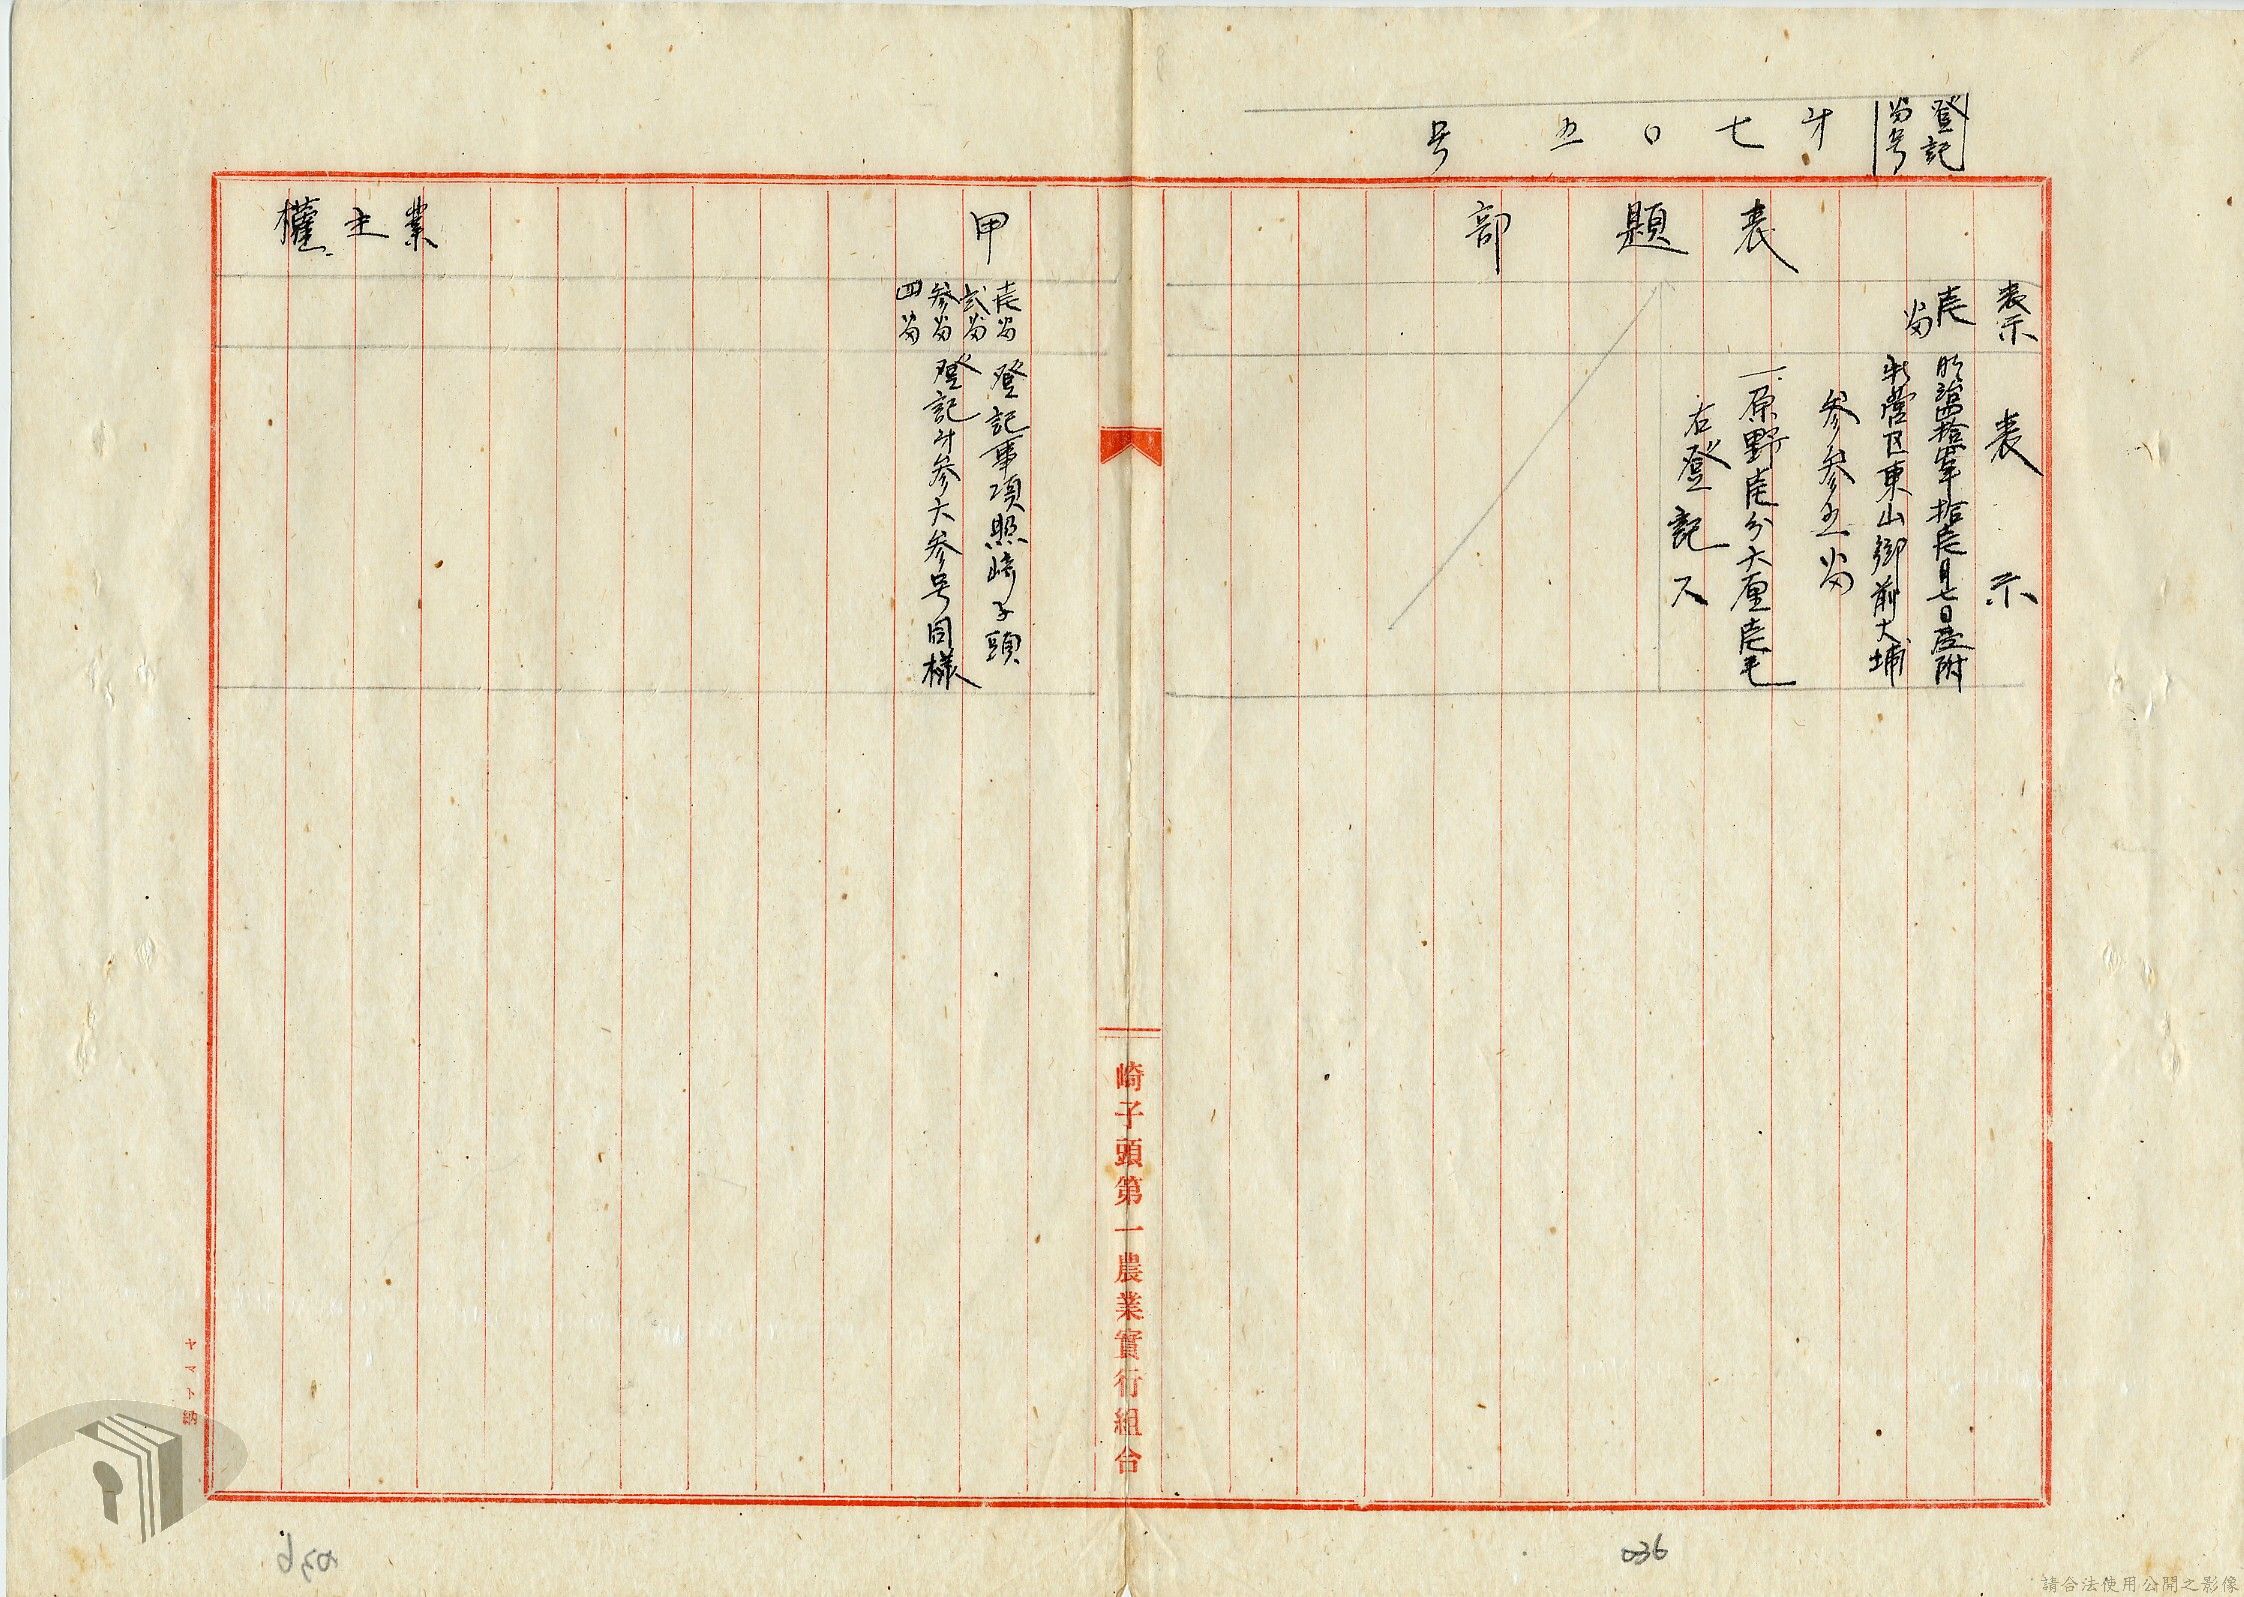 登記
番号
第七〇五号
表題部
表示
表示
壱
番
明治四拾四年拾壱月七日受附
新營区東山御前大埔
参参五番
一、原野壱分六厘壱毛
右登記ス
崎子頭第一農業實行組合
甲
壱番
弍番
参番
四番
登記事項照崎子頭
登記第参六参号同様
業主權
ヤマト納
036
036
請合法使用公開之影像